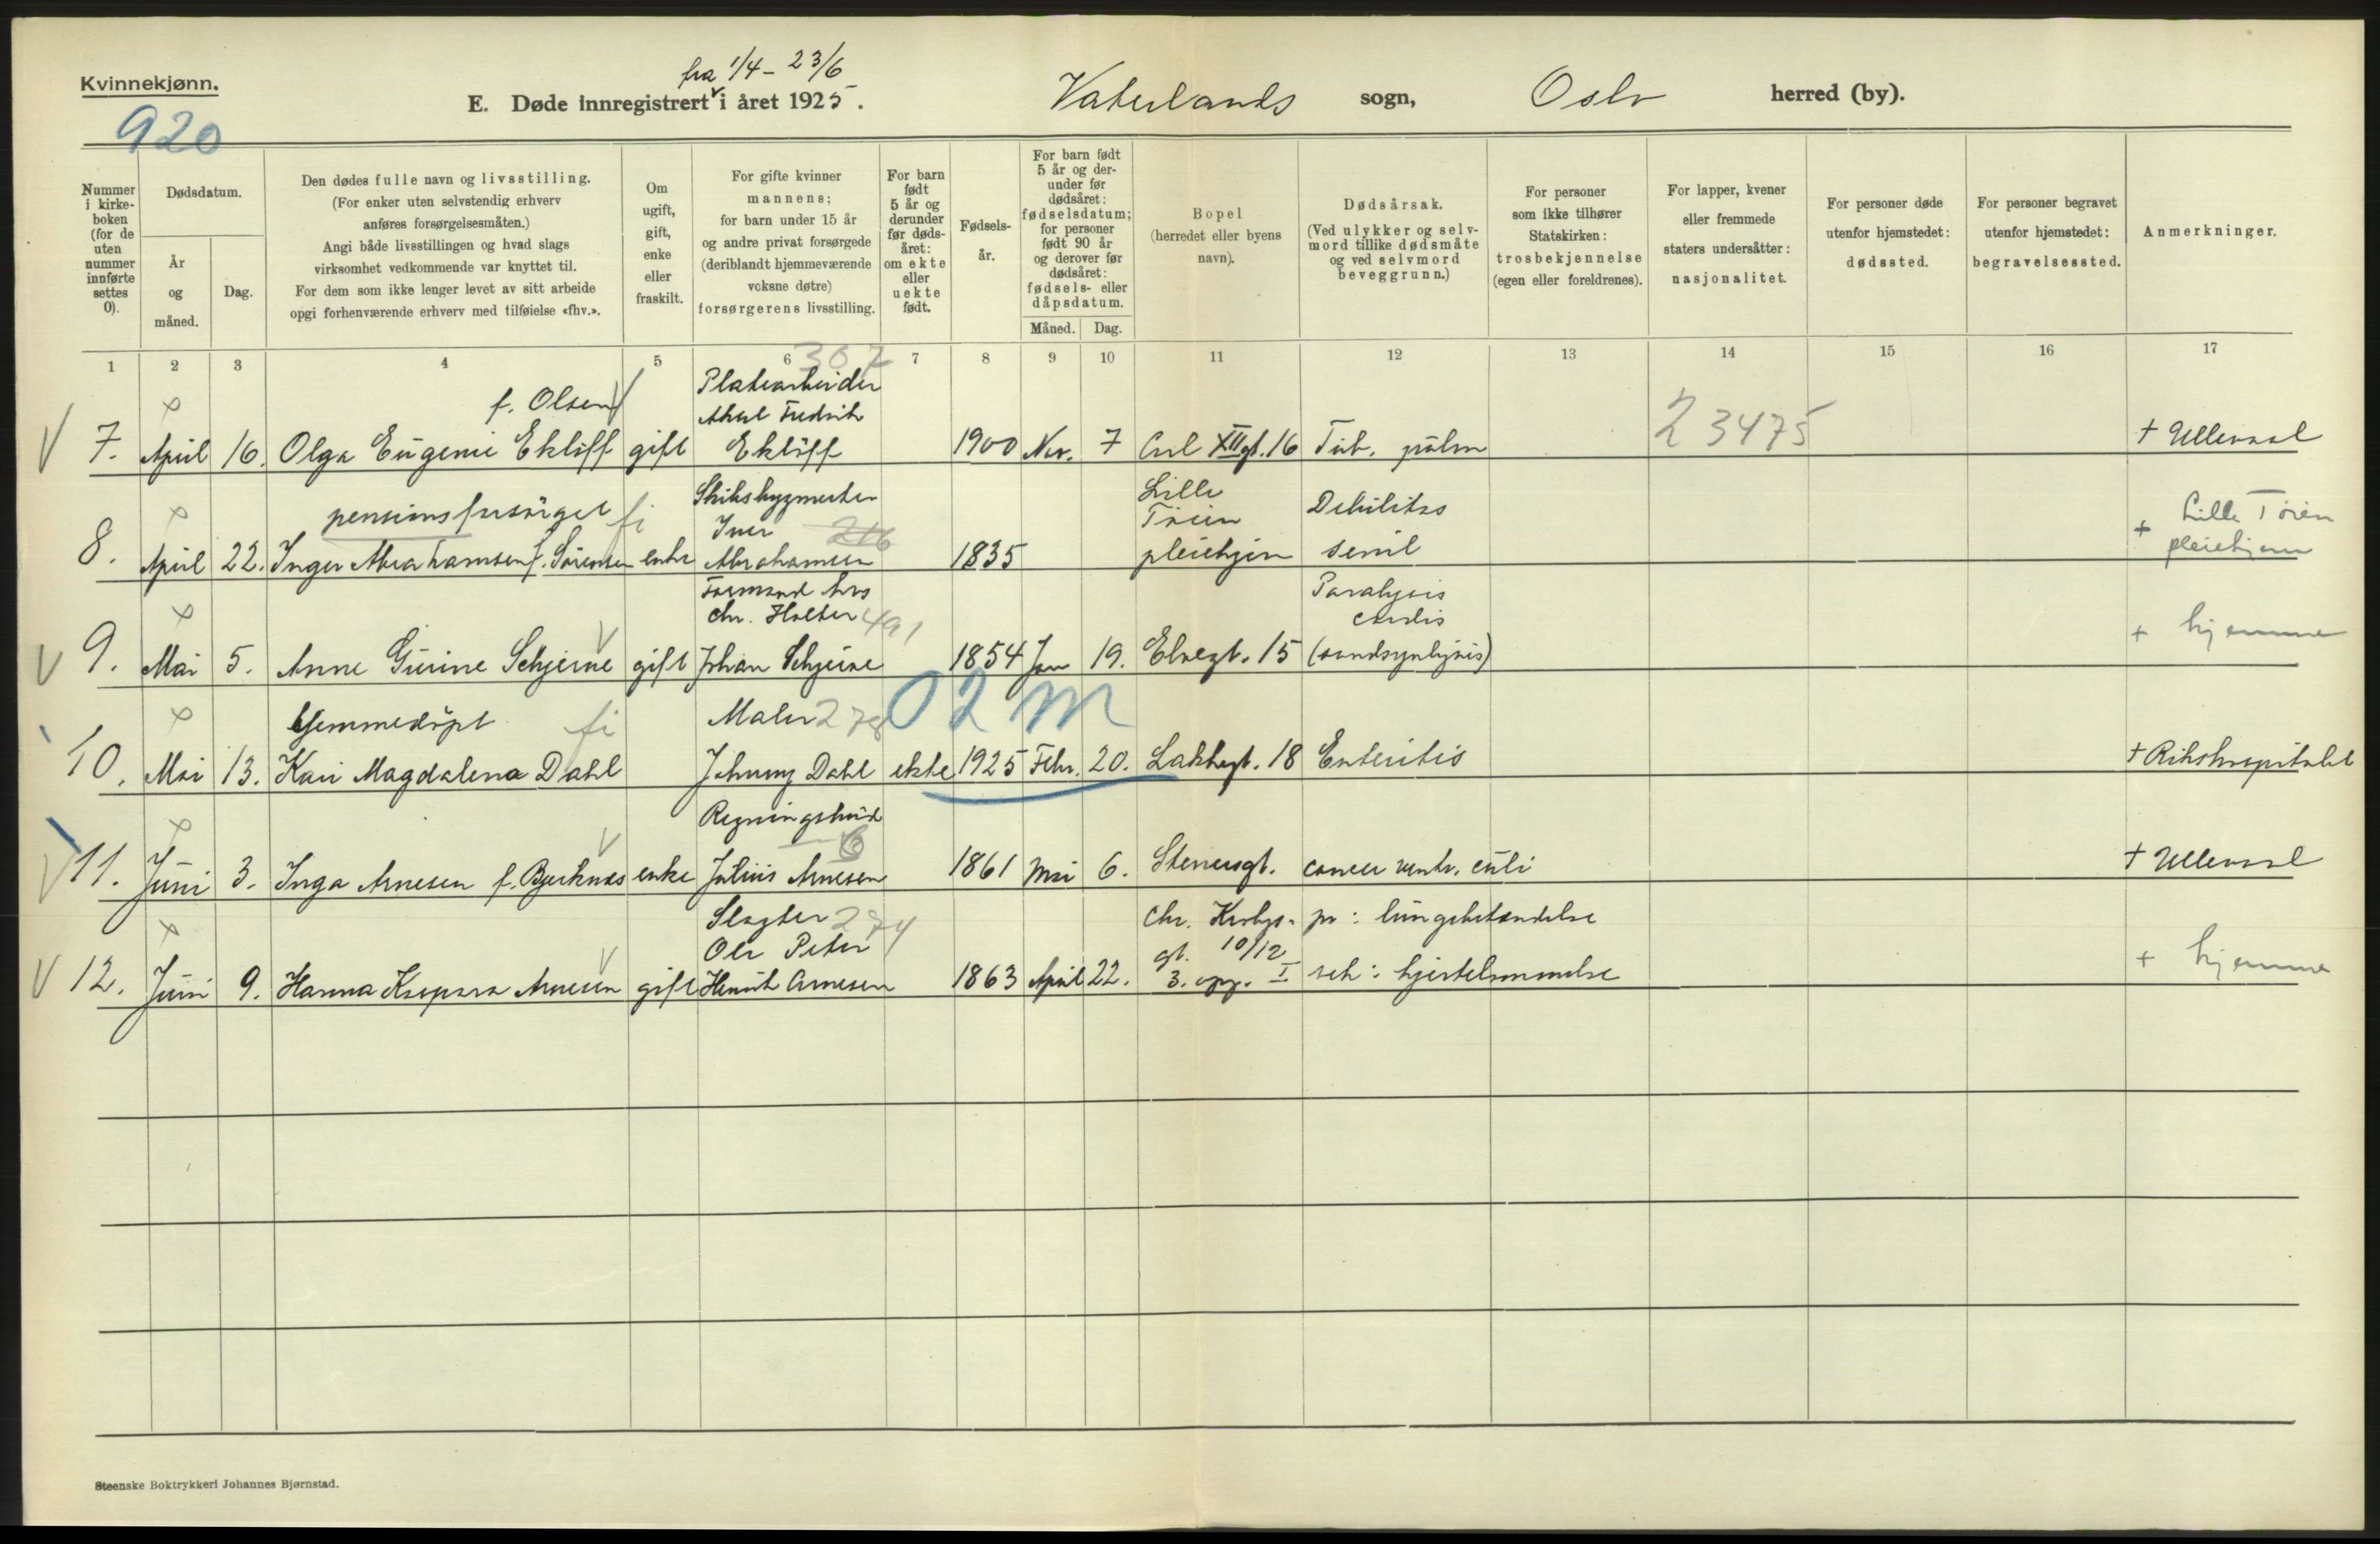 Kvinnekjønn.
920
fra 1/4 - 23/6
E. Døde innregistrert i året 1925.
Vaterlands sogn, Oslo herred (by).
Nummer i kirkeboken (for de uten nummer innførte settes 0).
Dødsdatum.
År og måned.
Dag.
Den dødes fulle navn og livsstilling.
(For enker uten selvstendig erhverv
anføres forsørgelsesmåten.)
Angi både livsstillingen og hvad slags
virksomhet vedkommende var knyttet til.
For dem som ikke lenger levet av sitt arbeide
opgi forhenværende erhverv med tilføielse «fhv.».
Om ugift, gift, enke eller fraskilt.
For gifte kvinner
mannens;
for barn under 15 år
og andre privat forsørgede
(deriblandt hjemmeværende
voksne døtre)
forsørgerens livsstilling.
For barn født 5 år og derunder før dødsåret: om ekte eller uekte født.
Fødselsår.
For barn født 5 år og derunder før dødsåret: fødselsdatum; for personer født 90 år og derover før dødsåret: fødsels- eller dåpsdatum.
Måned. Dag.
Bopel
(herredet eller byens
navn).
Dødsårsak.
(Ved ulykker og selvmord tillike dødsmåte og ved selvmord beveggrunn.)
For personer
som ikke tilhører
Statskirken:
trosbekjennelse
(egen eller foreldrenes).
For lapper, kvener
eller fremmede
staters undersåtter:
nasjonalitet.
For personer døde
utenfor hjemstedet:
dødssted.
For personer begravet
utenfor hjemstedet:
begravelsessted.
Anmerkninger.
1 2 3 4 5 6 7 8 9 10 11 12 13 14 15 16 17
307
f. Olsen Platearbeider
Axel Fredrik
7. April 16. Olga Eugenie Eklöff gift Eklöff 1900 Nov. 7 Carl XII gt. 16 Tub. pulm 23475 + Ullevaal
pensionsforsörget fi Skibsbygmester Lille Debilitas Lille Tøien
Iver 216 Töien + pleiehjem
8. April 22. Inger Abrahamsen f. Sörensen enke Abrahamsen 1835 pleiehjem senil
Formand hos Paralysis
Chr. Holter 491 cordis
9. Mai 5. Anne Gurine Schjerne gift Johan Schjerne 1854 Jan 19. Elvegt. 15 (sandsynligvis) + hjemme
02 m
hjemmedöpt fi Maler 278
10. Mai 13. Kari Magdalena Dahl Johnny Dahl ekte 1925 Febr. 20. Lakkegt. 18 Enteritis + Rikshospitalet
Regningsbud
6
11. Juni 3. Inga Arnesen f. Bjerknes enke Julius Arnesen 1861 Mai 6. Stenersgt. cancer ventr. culi + Ullevaal
Slagter 274 Chr. Krohgs- pr: lungebetendelse
Ole Peter gt. 10/12
12. Juni 9. Hanna Kaspara Arnesen gift Henrik Arnesen 1863 April 22. 3. opg. I sek: hjertelammelse + hjemme
Steenske Boktrykkeri Johannes Bjørnstad.